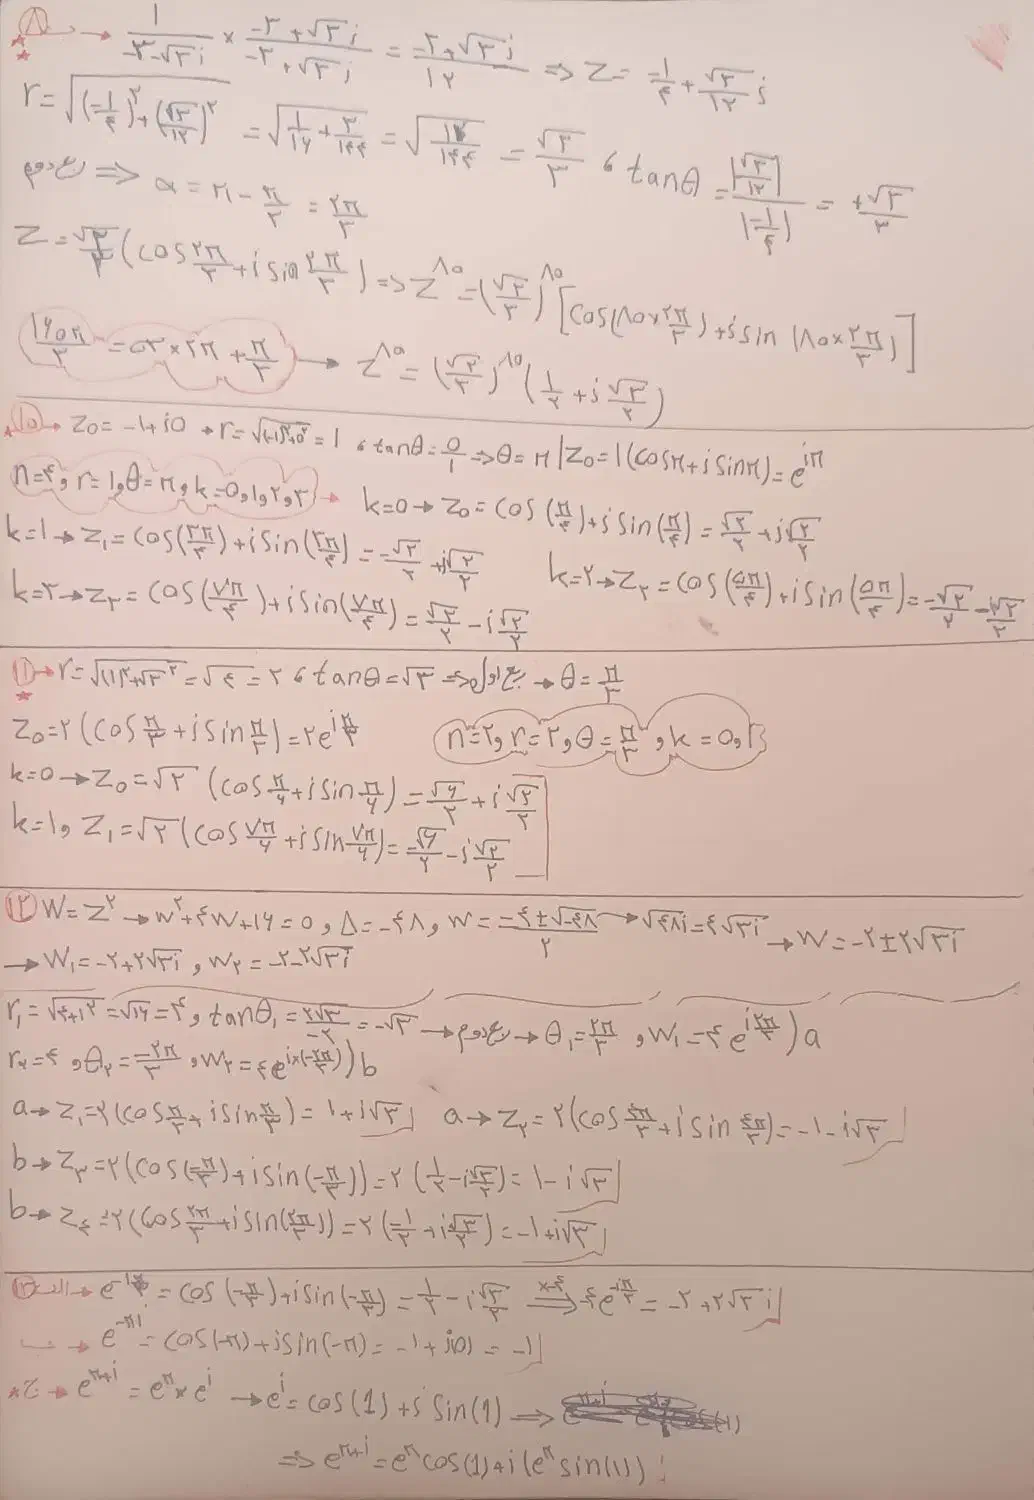 ۸ → ۱/(-۳-√۳i) × (-۳+√۳i)/(-۳+√۳i) = (-۳+√۳i)/۱۲ ⇒ z = -۱/۴ + √۳/۱۲ i
r = √((-۱/۴)^۲ + (√۳/۱۲)^۲) = √(۱/۱۶ + ۳/۱۴۴) = √(۱۲/۱۴۴) = √۳/۳ ، tanθ = |√۳/۱۲| / |-۱/۴| = +√۳/۳
ربع دوم ⇒ α = π - π/۳ = ۲π/۳
z = √۳/۳ (cos ۲π/۳ + i sin ۲π/۳) ⇒ z^۸۰ = (√۳/۳)^۸۰ [cos(۸۰×۲π/۳) + i sin(۸۰×۲π/۳)]
۱۶۰π/۳ = ۵۳×۲π + π/۳ → z^۸۰ = (√۳/۳)^۸۰ (۱/۲ + i √۳/۲)
۱۰ → z₀ = -۱+i۰ → r = √((-۱)^۲+۰^۲) = ۱ ، tanθ = ۰/۱ ⇒ θ = π / z₀ = ۱(cosπ + i sinπ) = e^iπ
n=۴, r=۱, θ=π, k=۰,۱,۲,۳ → k=۰ → z₀ = cos(π/۴) + i sin(π/۴) = √۲/۲ + i√۲/۲
k=۱ → z₁ = cos(۳π/۴) + i sin(۳π/۴) = -√۲/۲ + i√۲/۲
k=۲ → z₂ = cos(۵π/۴) + i sin(۵π/۴) = -√۲/۲ - i√۲/۲
k=۳ → z₃ = cos(۷π/۴) + i sin(۷π/۴) = √۲/۲ - i√۲/۲
۱۱ → r = √((۱)^۲+√۳^۲) = √۴ = ۲ ، tanθ = √۳ ⇒ ربع اول → θ = π/۳
z₀ = ۲(cos π/۳ + i sin π/۳) = ۲e^iπ/۳
n=۲, r=۲, θ=π/۳, k=۰,۱
k=۰ → z₀ = √۲ (cos π/۶ + i sin π/۶) = √۶/۲ + i √۲/۲
k=۱, z₁ = √۲ (cos ۷π/۶ + i sin ۷π/۶) = -√۶/۲ - i √۲/۲
۱۲ w = z^۲ → w^۲+۴w+۱۶ = ۰, Δ = -۴۸, w = (-۴±√-۴۸)/۲ → √۴۸i = ۴√۳i → w = -۲±۲√۳i
→ w₁ = -۲+۲√۳i, w₂ = -۲-۲√۳i
r₁ = √(۴+۱۲) = √۱۶ = ۴, tanθ₁ = ۲√۳/-۲ = -√۳ → ربع دوم → θ₁ = ۲π/۳, w₁ = ۴e^(i۲π/۳) ) a
r₂ = ۴, θ₂ = -۲π/۳, w₂ = ۴e^(i×(-۲π/۳)) ) b
a → z₁ = ۲(cos π/۳ + i sin π/۳) = ۱+i√۳
a → z₂ = ۲(cos ۴π/۳ + i sin ۴π/۳) = -۱-i√۳
b → z₃ = ۲(cos(-π/۳) + i sin(-π/۳)) = ۲(۱/۲ - i√۳/۲) = ۱-i√۳
b → z₄ = ۲(cos ۲π/۳ + i sin(۲π/۳)) = ۲(-۱/۲ + i√۳/۲) = -۱+i√۳
۱۳ الف → = cos(-π/۳) + i sin(-π/۳) = ۱/۲ - i√۳/۲ ×-۴ ⇒ -۴e^(-iπ/۳) = -۲+۲√۳i
ب → e^-πi = cos(-π) + i sin(-π) = -۱+i(۰) = -۱
ج → e^π+i = e^π × e^i → e^i = cos(1) + i sin(1) ⇒
⇒ e^π+i = e^π cos(1) + i(e^π sin(1))